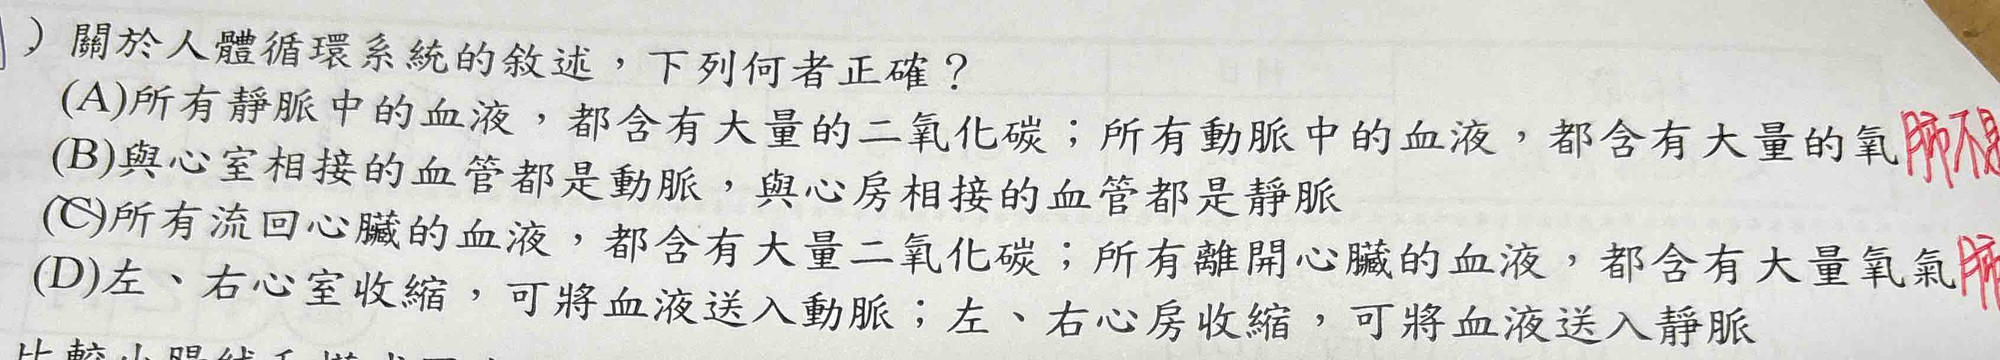 ）關於人體循環系統的敘述，下列何者正確？
(A)所有靜脈中的血液，都含有大量的二氧化碳；所有動脈中的血液，都含有大量的氧 肺不是
(B)與心室相接的血管都是動脈，與心房相接的血管都是靜脈
(C)所有流回心臟的血液，都含有大量二氧化碳；所有離開心臟的血液，都含有大量氧氣 肺
(D)左、右心室收縮，可將血液送入動脈；左、右心房收縮，可將血液送入靜脈
比較小腸絨毛